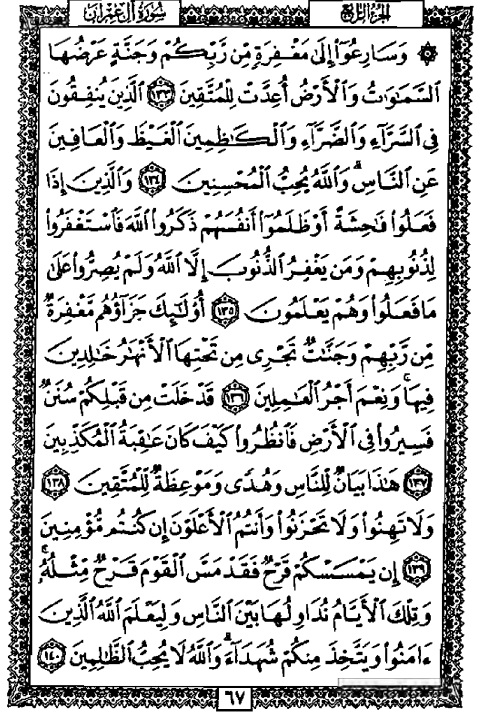 سُورَةُ آلِ عِمْرَانَ
الجُزْءُ الرَّابِعُ
۞ وَسَارِعُوٓا۟ إِلَىٰ مَغْفِرَةٍ مِّن رَّبِّكُمْ وَجَنَّةٍ عَرْضُهَا
ٱلسَّمَـٰوَٰتُ وَٱلْأَرْضُ أُعِدَّتْ لِلْمُتَّقِينَ ١٣٣ ٱلَّذِينَ يُنفِقُونَ
فِى ٱلسَّرَّآءِ وَٱلضَّرَّآءِ وَٱلْكَـٰظِمِينَ ٱلْغَيْظَ وَٱلْعَافِينَ
عَنِ ٱلنَّاسِ ۗ وَٱللَّهُ يُحِبُّ ٱلْمُحْسِنِينَ ١٣٤ وَٱلَّذِينَ إِذَا
فَعَلُوا۟ فَـٰحِشَةً أَوْ ظَلَمُوٓا۟ أَنفُسَهُمْ ذَكَرُوا۟ ٱللَّهَ فَٱسْتَغْفَرُوا۟
لِذُنُوبِهِمْ وَمَن يَغْفِرُ ٱلذُّنُوبَ إِلَّا ٱللَّهُ وَلَمْ يُصِرُّوا۟ عَلَىٰ
مَا فَعَلُوا۟ وَهُمْ يَعْلَمُونَ ١٣٥ أُو۟لَـٰٓئِكَ جَزَآؤُهُم مَّغْفِرَةٌ
مِّن رَّبِّهِمْ وَجَنَّـٰتٌ تَجْرِى مِن تَحْتِهَا ٱلْأَنْهَـٰرُ خَـٰلِدِينَ
فِيهَا ۚ وَنِعْمَ أَجْرُ ٱلْعَـٰمِلِينَ ١٣٦ قَدْ خَلَتْ مِن قَبْلِكُمْ سُنَنٌ
فَسِيرُوا۟ فِى ٱلْأَرْضِ فَٱنظُرُوا۟ كَيْفَ كَانَ عَـٰقِبَةُ ٱلْمُكَذِّبِينَ
١٣٧ هَـٰذَا بَيَانٌ لِّلنَّاسِ وَهُدًى وَمَوْعِظَةٌ لِّلْمُتَّقِينَ ١٣٨
وَلَا تَهِنُوا۟ وَلَا تَحْزَنُوا۟ وَأَنتُمُ ٱلْأَعْلَوْنَ إِن كُنتُم مُّؤْمِنِينَ
١٣٩ إِن يَمْسَسْكُمْ قَرْحٌ فَقَدْ مَسَّ ٱلْقَوْمَ قَرْحٌ مِّثْلُهُۥ ۚ
وَتِلْكَ ٱلْأَيَّامُ نُدَاوِلُهَا بَيْنَ ٱلنَّاسِ وَلِيَعْلَمَ ٱللَّهُ ٱلَّذِينَ
ءَامَنُوا۟ وَيَتَّخِذَ مِنكُمْ شُهَدَآءَ ۗ وَٱللَّهُ لَا يُحِبُّ ٱلظَّـٰلِمِينَ ١٤٠
٦٧